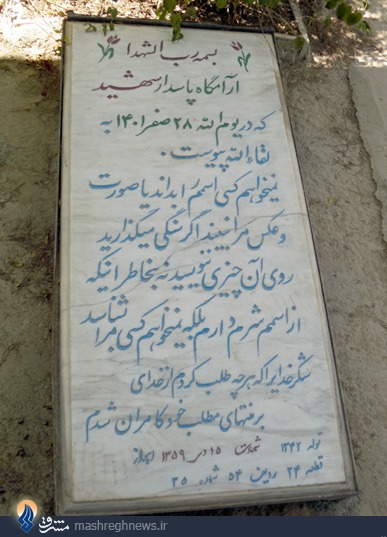 بسم رب الشهدا
آرامگاه پاسدار شهید
که در یوم الله ۲۸ صفر ۱۴۰۱ به
لقاءالله پیوست.
نمیخواهم کسی اسمم را بداند یا صورت
و عکس مرا ببیند اگر سنگی میگذارید
روی آن چیزی ننویسید نه بخاطر اینکه
از اسمم شرم دارم بلکه نمیخواهم کسی مرا بشناسد
شکر خدایرا که هر چه طلب کردم از خدای
بر منتهای مطلب خود کامران شدم
تولد ۱۳۴۲ شهادت ۱۵ دی ۱۳۵۹ اهواز
قطعه ۲۴ ردیف ۵۴ شماره ۳۵
مشرق
mashreghnews.ir